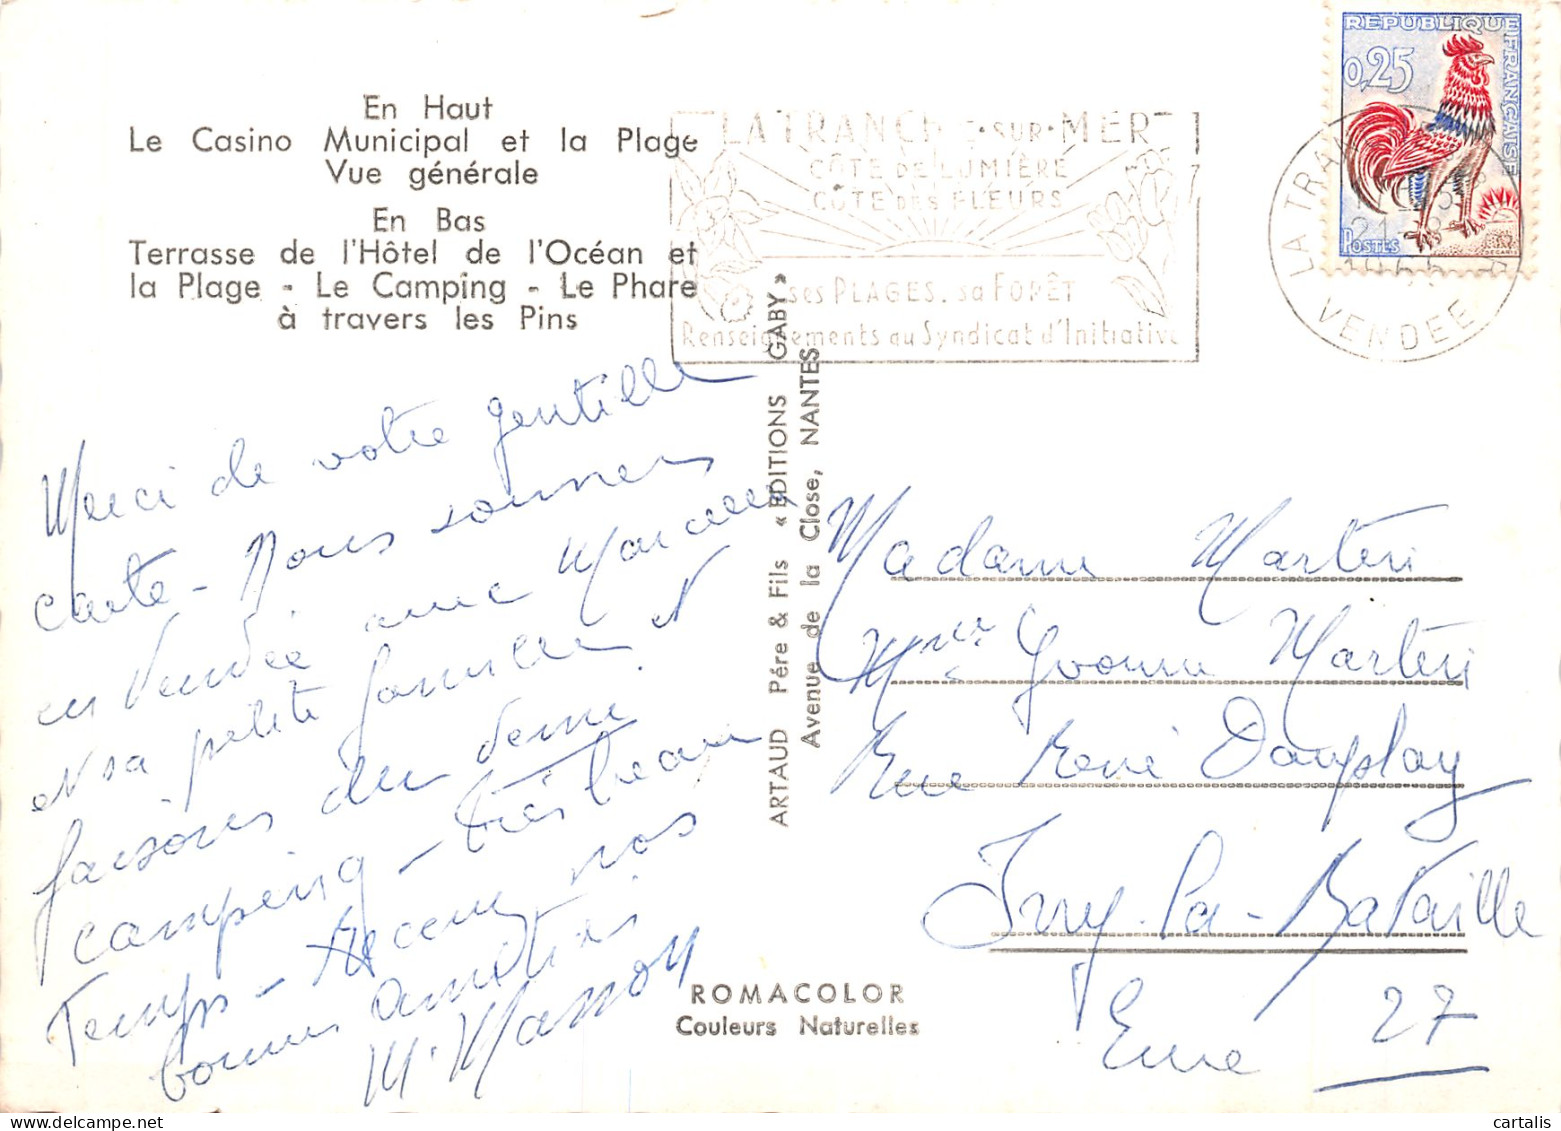 En Haut
Le Casino Municipal et la Plage
Vue générale
En Bas
Terrasse de l'Hôtel de l'Océan et
la Plage - Le Camping - Le Phare
à travers les Pins
LA TRANCHE-SUR-MER
CÔTE DE LUMIÈRE
CÔTE DES FLEURS
ses PLAGES. sa FORÊT
Renseignements au Syndicat d'Initiative
REPUBLIQUE FRANÇAISE
0,25
POSTES
LA TRAN
VENDEE
Merci de votre gentille
carte - Nous sommes
en Vendée avec
et sa petite famille et
faisons du
camping - très beau
Temps - nos
bonnes amitiés
M. Masson
ARTAUD Pére & Fils « EDITIONS GABY »
Avenue de la Close, NANTES
Madame Marteri
Yvonne Marteri
Rue René
Ivry-la-Bataille
Eure 27
ROMACOLOR
Couleurs Naturelles
cartalis